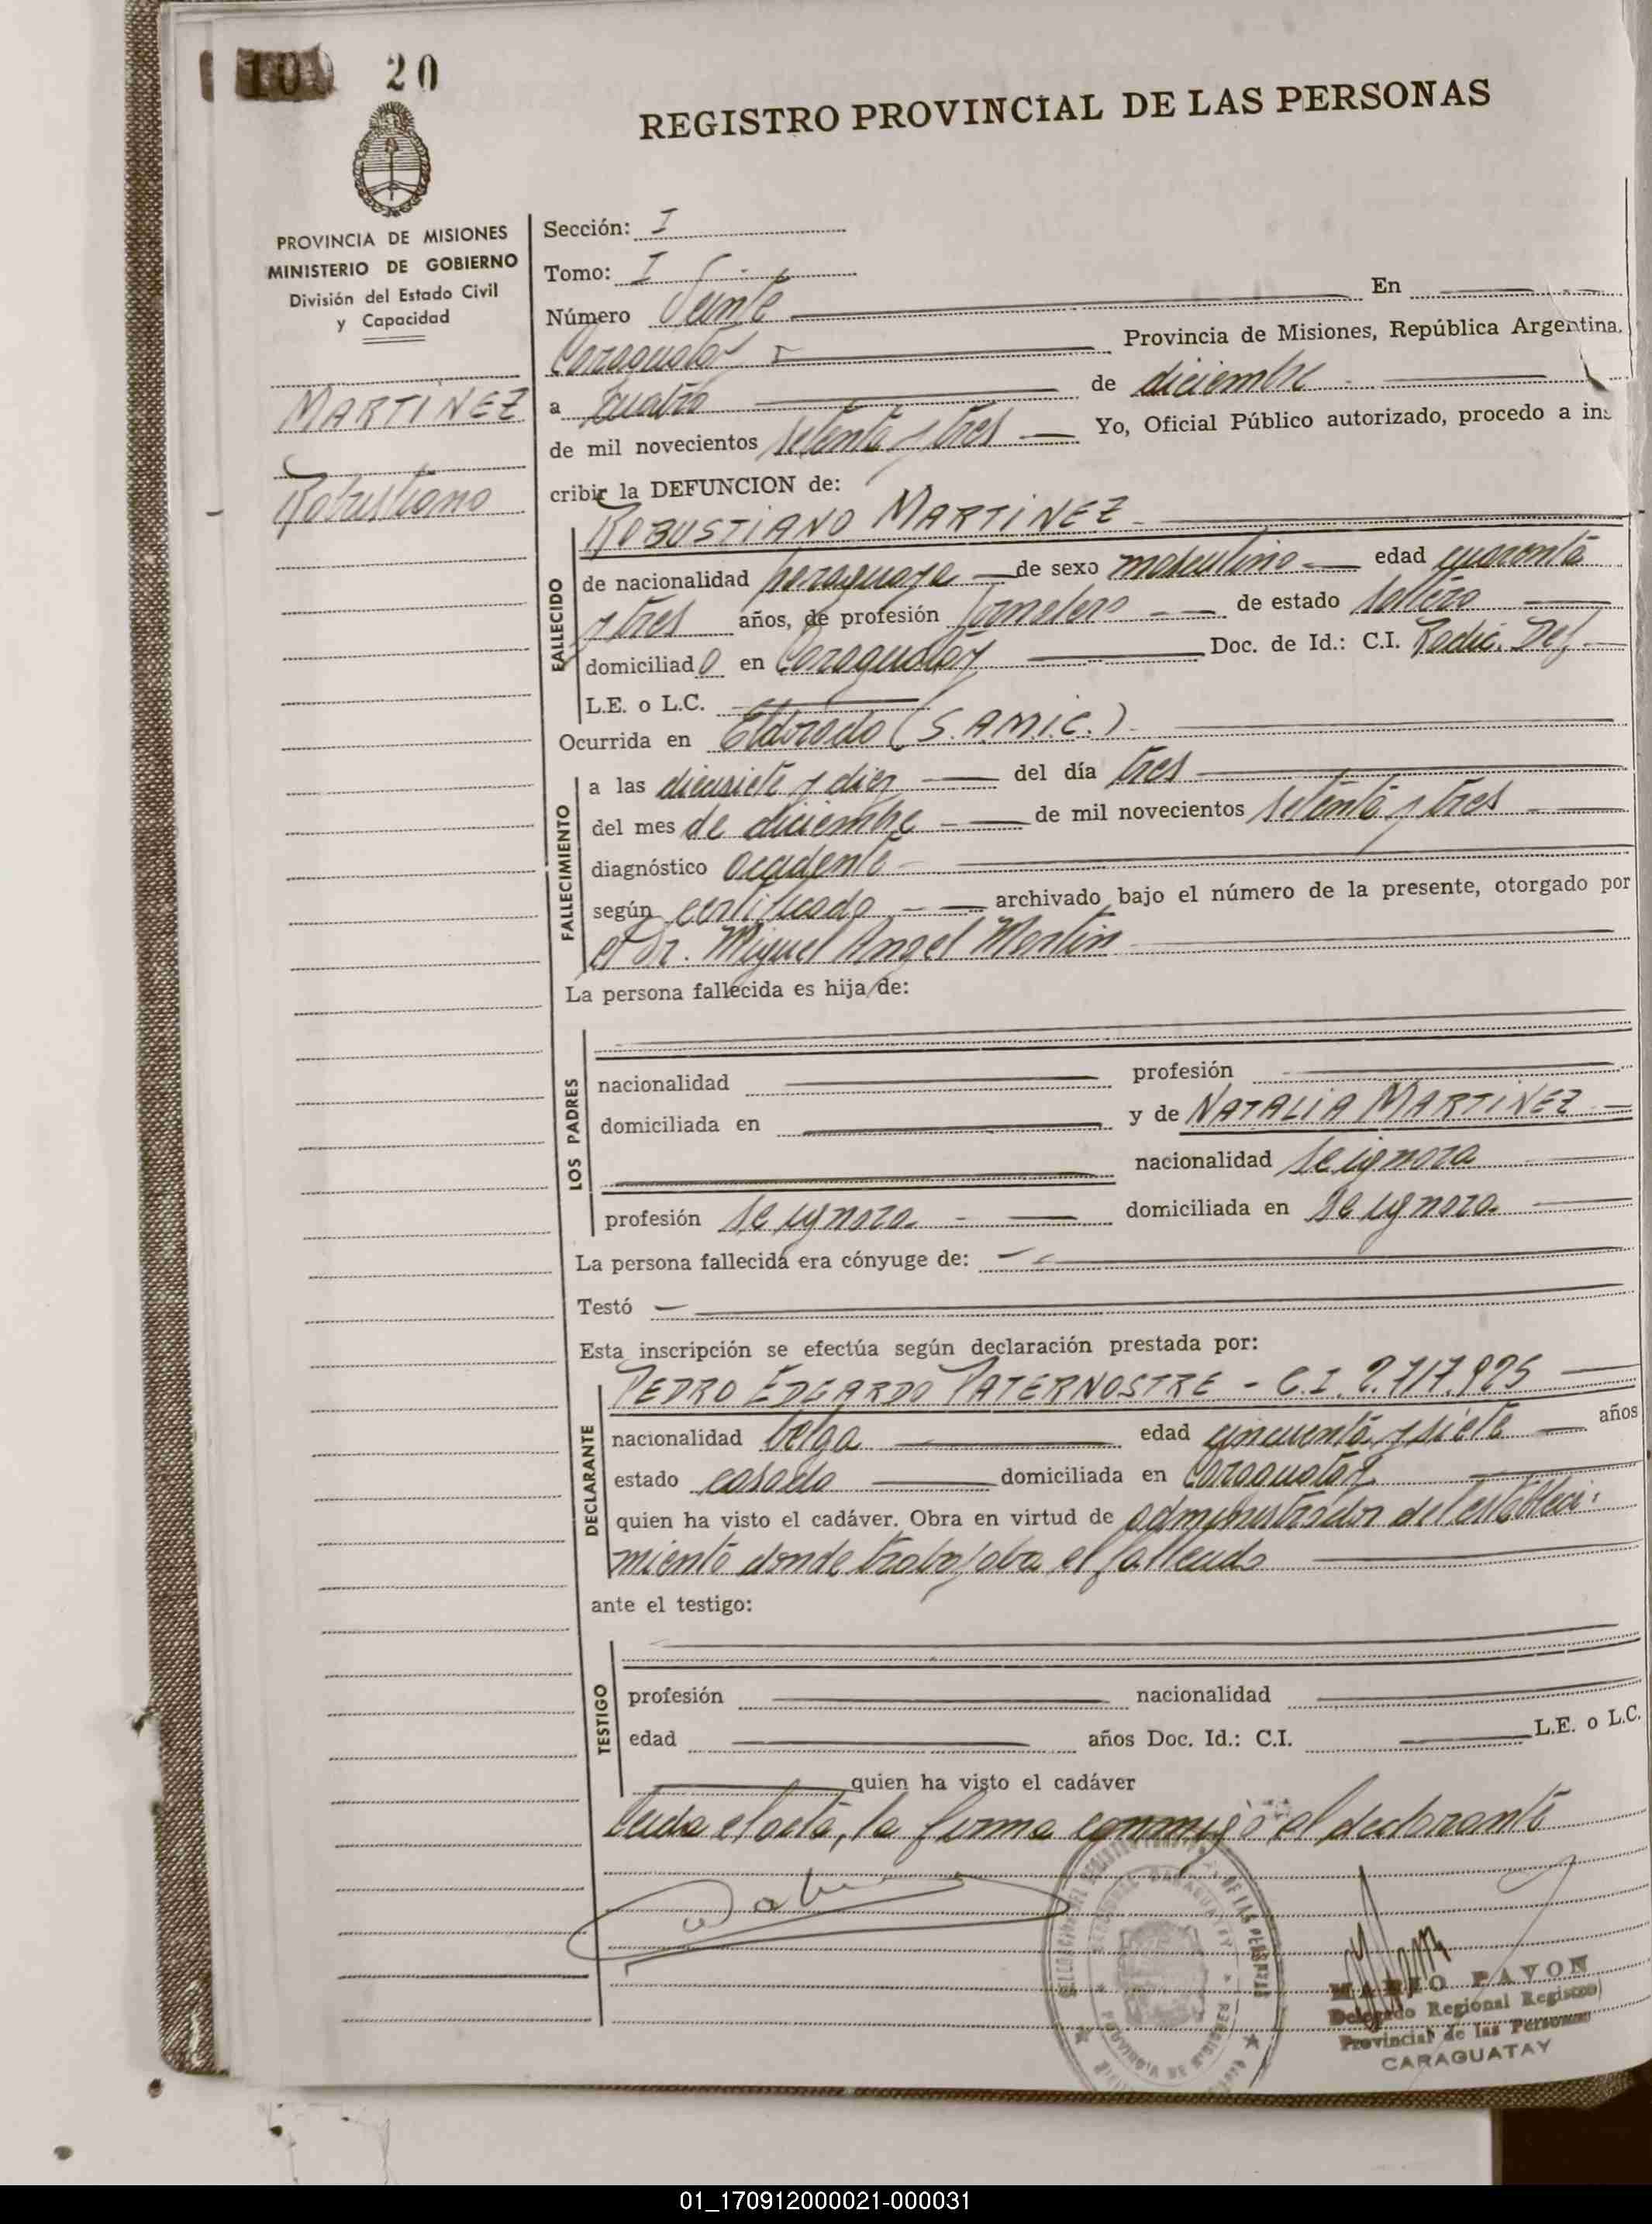 20
REGISTRO PROVINCIAL DE LAS PERSONAS
PROVINCIA DE MISIONES
MINISTERIO DE GOBIERNO
División del Estado Civil
y Capacidad
MARTINEZ
Robustiano
Sección: I
Tomo: I
Número Veinte En
Caraguatay Provincia de Misiones, República Argentina,
a cuatro de diciembre
de mil novecientos setenta y tres Yo, Oficial Público autorizado, procedo a ins
cribir la DEFUNCION de:
ROBUSTIANO MARTINEZ
FALLECIDO
de nacionalidad paraguaya de sexo masculino edad cuarenta
y tres años, de profesión Jornalero de estado soltero
domiciliado en Caraguatay Doc. de Id.: C.I. Radic. Def.
L.E. o L.C.
Ocurrida en Eldorado (S.A.M.I.C.)
FALLECIMIENTO
a las diecisiete y diez del día tres
del mes de diciembre de mil novecientos setenta y tres
diagnóstico accidente
según certificado archivado bajo el número de la presente, otorgado por
el Dr. Miguel Angel Martin
La persona fallecida es hija de:
LOS PADRES
nacionalidad profesión
domiciliada en y de NATALIA MARTINEZ
nacionalidad se ignora
profesión se ignora domiciliada en se ignora
La persona fallecida era cónyuge de:
Testó
Esta inscripción se efectúa según declaración prestada por:
DECLARANTE
PEDRO EDGARDO PATERNOSTRE - C.I. 2.717.925
nacionalidad belga edad cincuenta y siete años
estado casado domiciliada en Caraguatay
quien ha visto el cadáver. Obra en virtud de administrador del estableci-
miento donde trabajaba el fallecido
ante el testigo:
TESTIGO
profesión nacionalidad
edad años Doc. Id.: C.I. L.E. o L.C.
quien ha visto el cadáver
Leida el acta, la firma conmigo el declarante
MARIO PAVON
Delegado Regional Registro
Provincial de las Personas
CARAGUATAY
PROVINCIA DE MISIONES
01_170912000021-000031